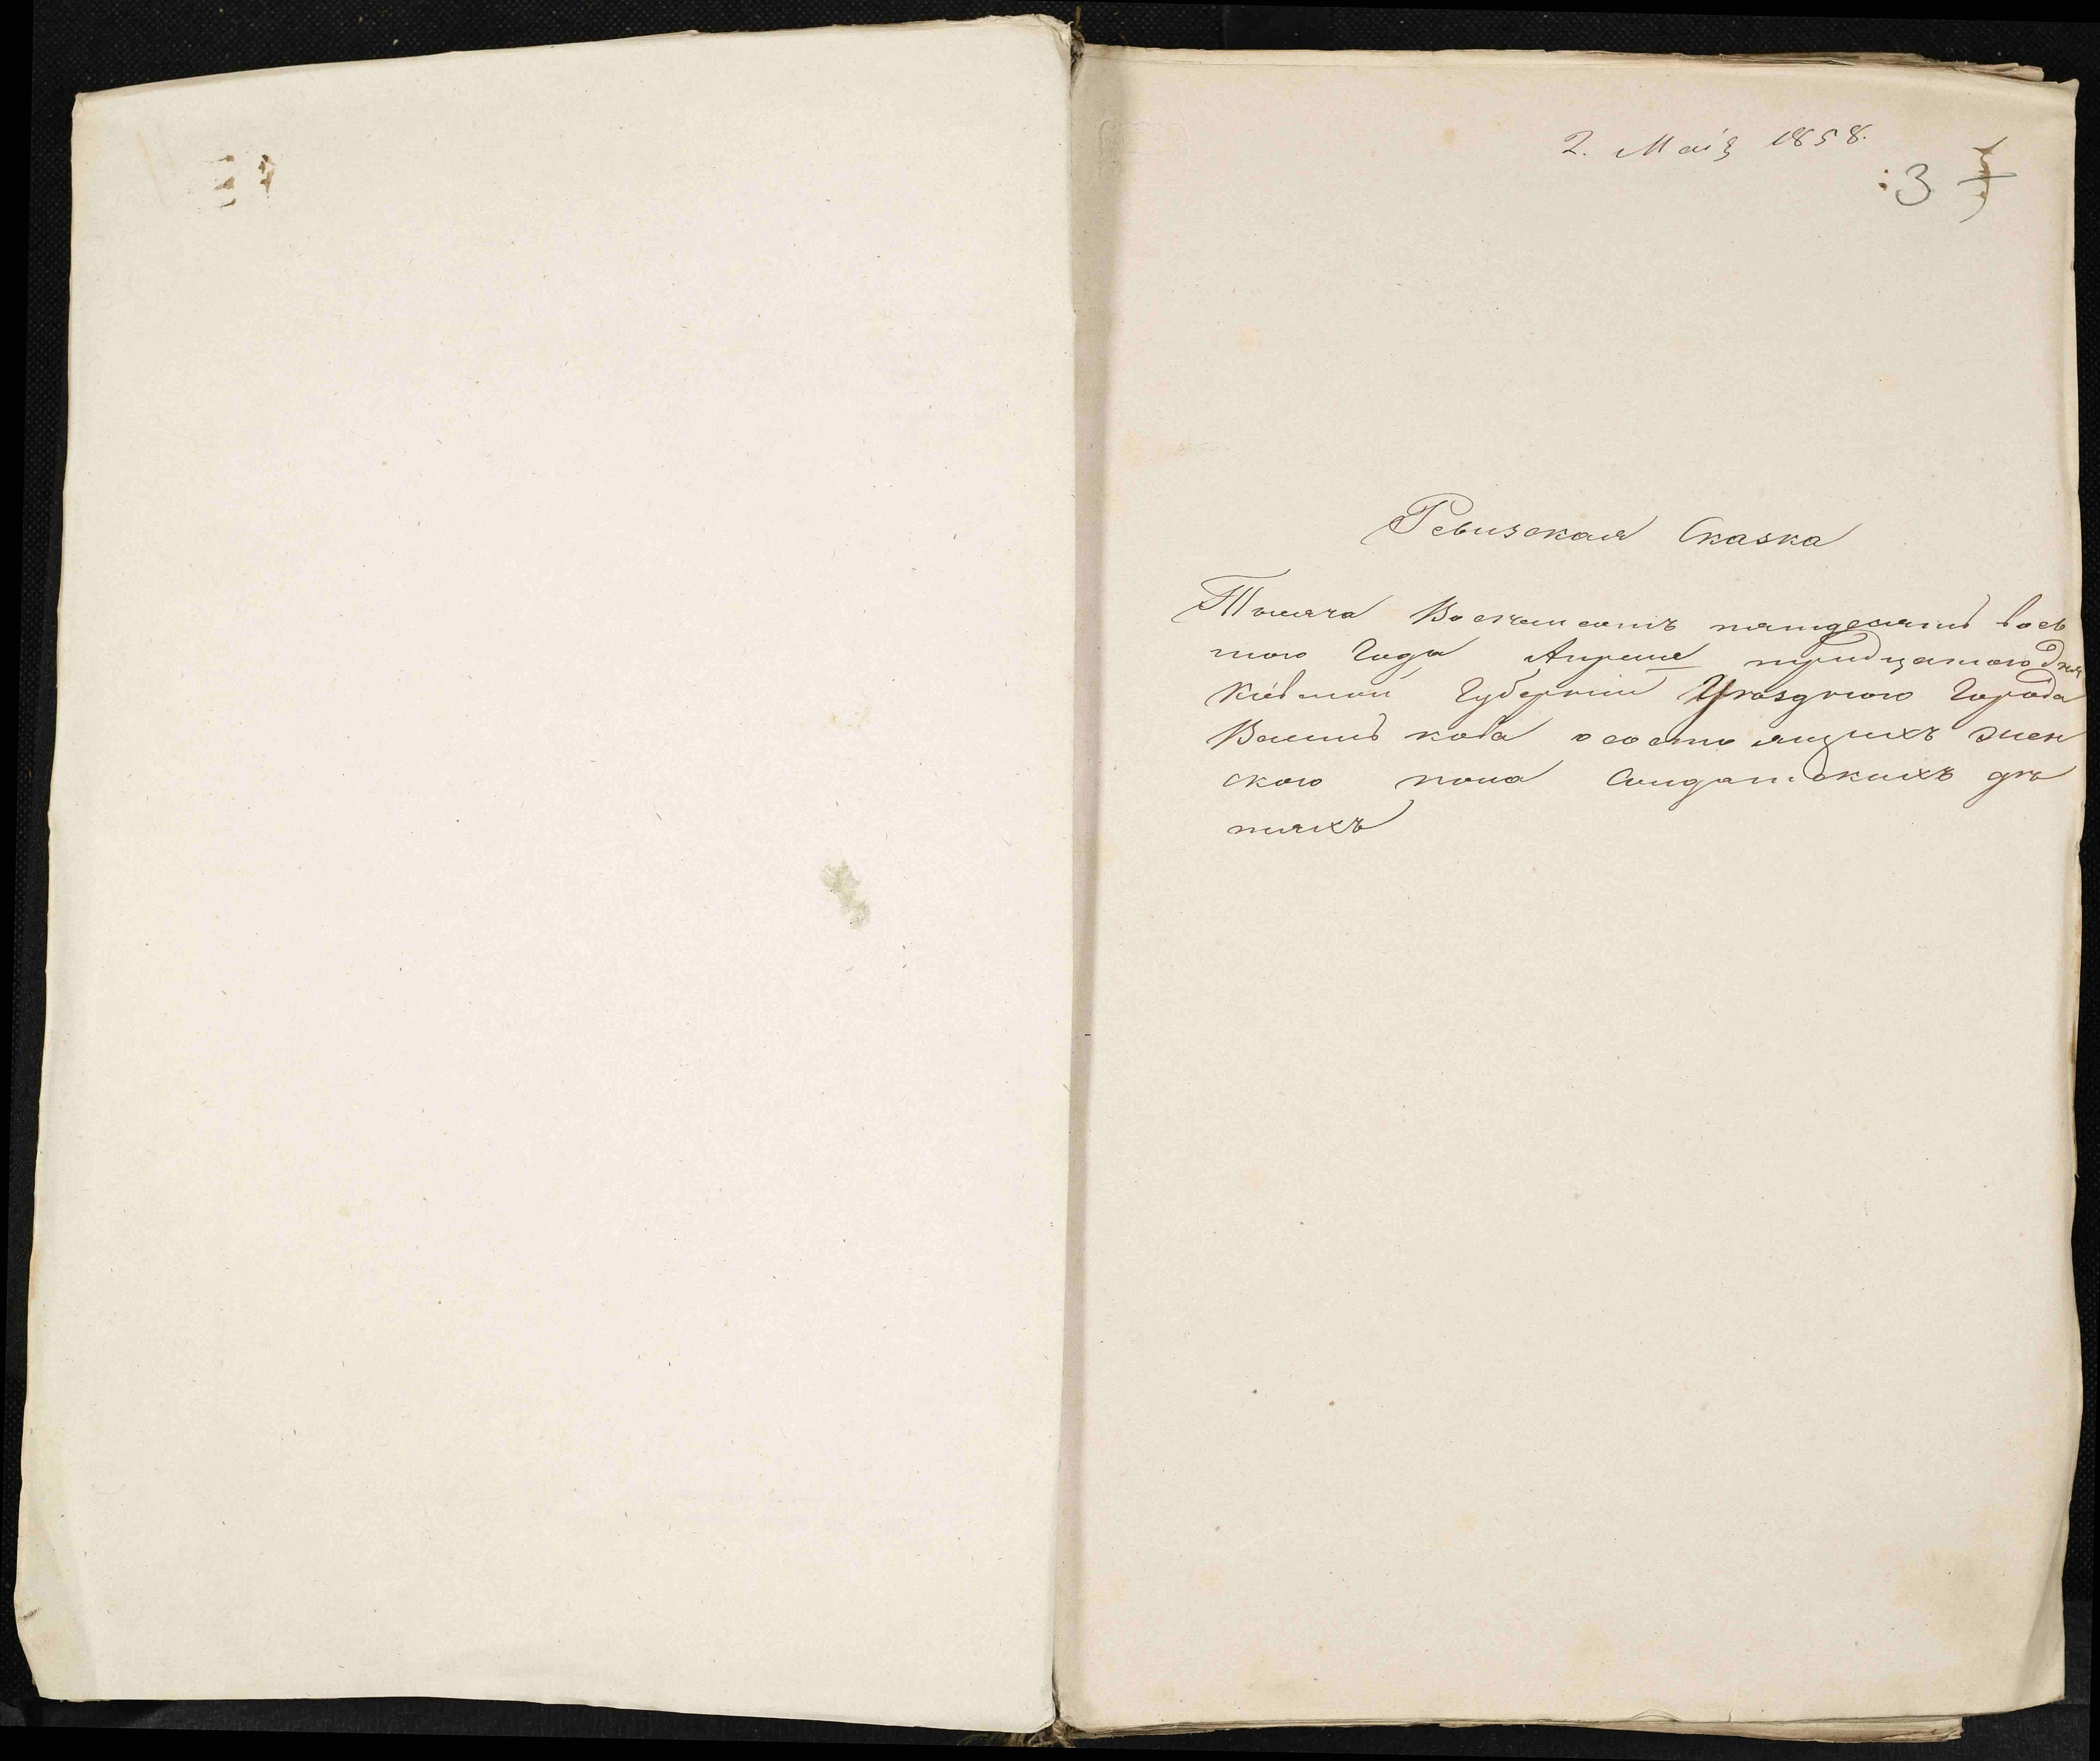 2. Маія 1858.
3
Ревизская Сказка
Тысяча Восемьсотъ пятдесятъ вось
мого Года Апреля тридцатого дня
Кіевской Губерніи Уѣзднаго Города
Василь кова о состоящихъ жен
ского пола Солдатскихъ дѣ
тяхъ